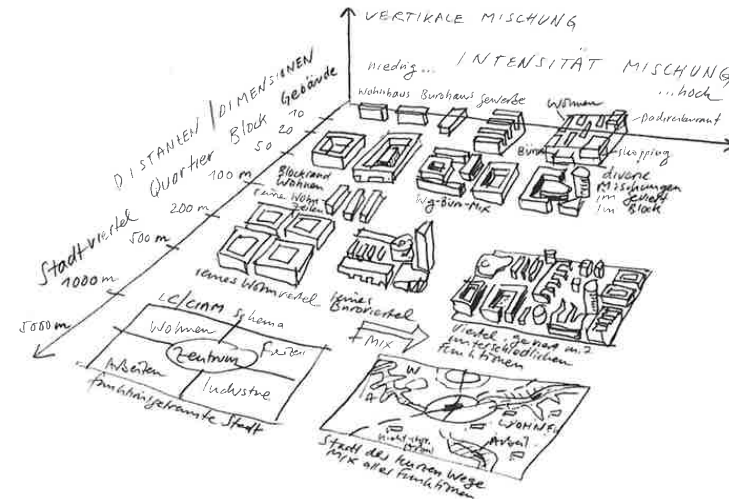 VERTIKALE MISCHUNG
INTENSITÄT MISCHUNG
niedrig...
...hoch
DISTANZEN / DIMENSIONEN
Gebäude
Block
Quartier
Stadtviertel
10
20
50
100 m
200 m
500 m
1000 m
5000 m
Wohnhaus Bürohaus Gewerbe
Wohnen
Büro
shopping
Blockrand
Wohnen
reine Wohn
zeilen
Wg-Büro-Mix
diverse
Mischungen
im geviert
im Block
reines Wohnviertel
reines
Büroviertel
+ MIX
Viertel
unterschiedlichen
Funktionen
LC/CIAM Schema
Wohnen
Zentrum
Arbeiten
Industrie
funktionsgetrennte Stadt
W
A
WOHNEN
Arbeit
Stadt der kurzen Wege
MIX aller Funktionen